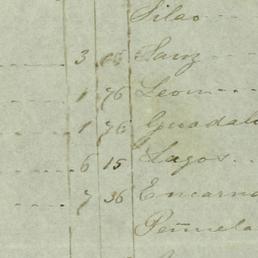 Silao
3 05 Sauz
1 76 Leon
1 76 Guadalu
6 15 Lagos
7 36 Encarna
Peñuela